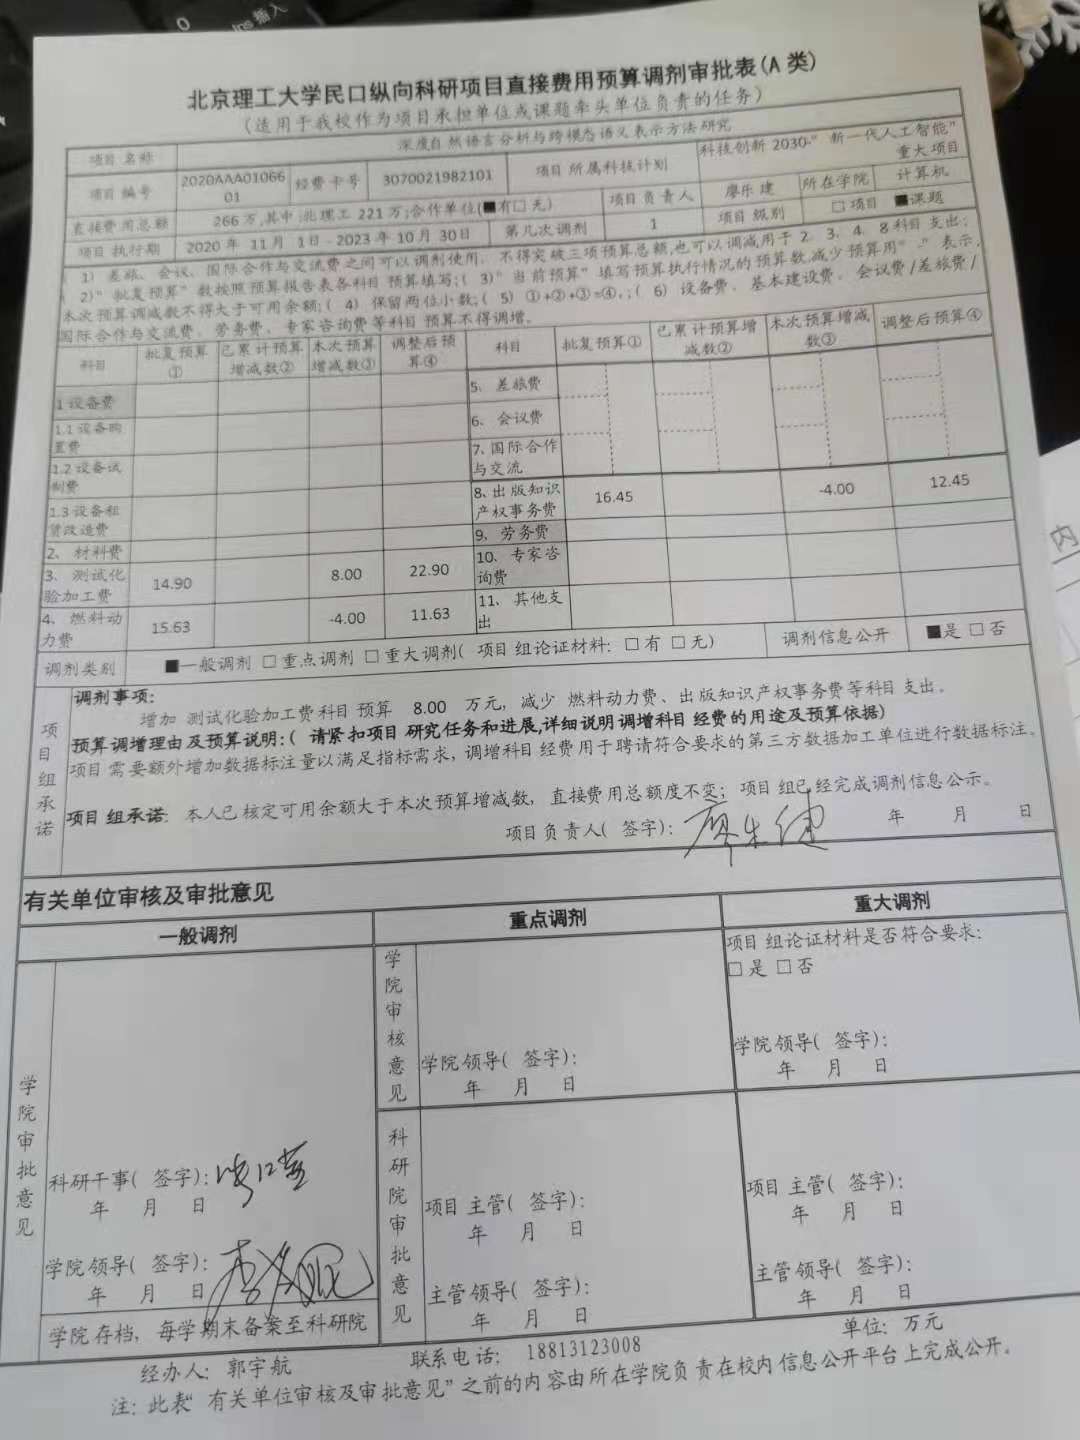 插入
北京理工大学民口纵向科研项目直接费用预算调剂审批表(A 类)
(适用于我校作为项目承担单位或课题牵头单位负责的任务)
项目名称 深度自然语言分析与跨模态语义表示方法研究
项目编号 2020AAA0106601 经费卡号 3070021982101 项目所属科技计划 科技创新 2030-"新一代人工智能"重大项目
直接费用总额 266 万,其中:北理工 221 万;合作单位(■有□无) 项目负责人 廖乐健 所在学院 计算机
项目执行期 2020 年 11 月 1日 - 2023 年 10 月 30日 第几次调剂 1 项目级别 □项目 ■课题
(1)差旅、会议、国际合作与交流费之间可以调剂使用,不得突破三项预算总额,也可以调减用于 2、3、4、8科目支出;
(2)"批复预算"数按照预算报告表各科目预算填写;(3)"当前预算"填写预算执行情况的预算数,减少预算用"-"表示,
本次预算调减数不得大于可用余额;(4)保留两位小数;(5)①+②+③=④,;(6)设备费、基本建设费、会议费/差旅费/
国际合作与交流费、劳务费、专家咨询费等科目预算不得调增。
科目 批复预算① 已累计预算增减数② 本次预算增减数③ 调整后预算④ 科目 批复预算① 已累计预算增减数② 本次预算增减数③ 调整后预算④
1 设备费 5、差旅费
1.1 设备购置费 6、会议费
1.2 设备试制费 7、国际合作与交流
1.3 设备租赁改造费 8、出版知识产权事务费 16.45 -4.00 12.45
2、材料费 9、劳务费
3、测试化验加工费 14.90 8.00 22.90 10、专家咨询费
4、燃料动力费 15.63 -4.00 11.63 11、其他支出
调剂类别 ■一般调剂 □重点调剂 □重大调剂(项目组论证材料: □有 □无) 调剂信息公开 ■是 □否
项目组承诺
调剂事项:
增加 测试化验加工费科目预算 8.00 万元,减少 燃料动力费、出版知识产权事务费等科目支出。
预算调增理由及预算说明:(请紧扣项目研究任务和进展,详细说明调增科目经费的用途及预算依据)
项目需要额外增加数据标注量以满足指标需求,调增科目经费用于聘请符合要求的第三方数据加工单位进行数据标注。
项目组承诺:本人已核定可用余额大于本次预算增减数,直接费用总额度不变;项目组已经完成调剂信息公示。
项目负责人(签字): 廖乐健 年 月 日
有关单位审核及审批意见
一般调剂 重点调剂 重大调剂
学院审批意见
科研干事(签字):
年 月 日
学院领导(签字):
年 月 日
学院存档,每学期末备案至科研院
学院审核意见
学院领导(签字):
年 月 日
项目组论证材料是否符合要求:
□是 □否
学院领导(签字):
年 月 日
科研院审批意见
项目主管(签字):
年 月 日
主管领导(签字):
年 月 日
项目主管(签字):
年 月 日
主管领导(签字):
年 月 日
经办人:郭宇航 联系电话: 18813123008 单位:万元
注:此表"有关单位审核及审批意见"之前的内容由所在学院负责在校内信息公开平台上完成公开。
内